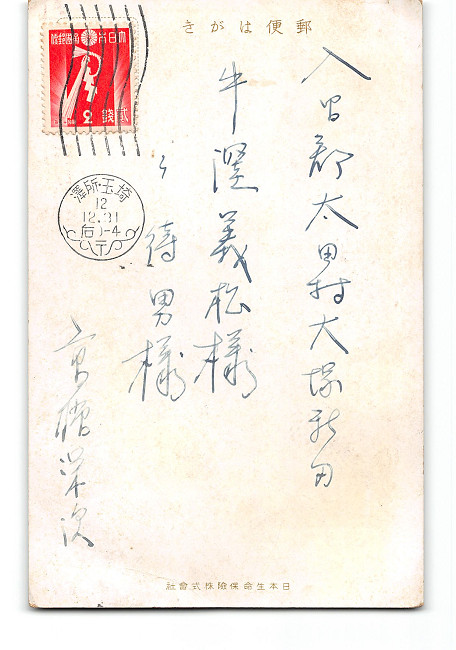 郵便はがき
大日本帝國郵便
貳錢
2
埼玉・所澤
12
12.31
后0-4
入間郡太田村大塚新田
牛窪義松様
〃待男様
日本生命保險株式會社